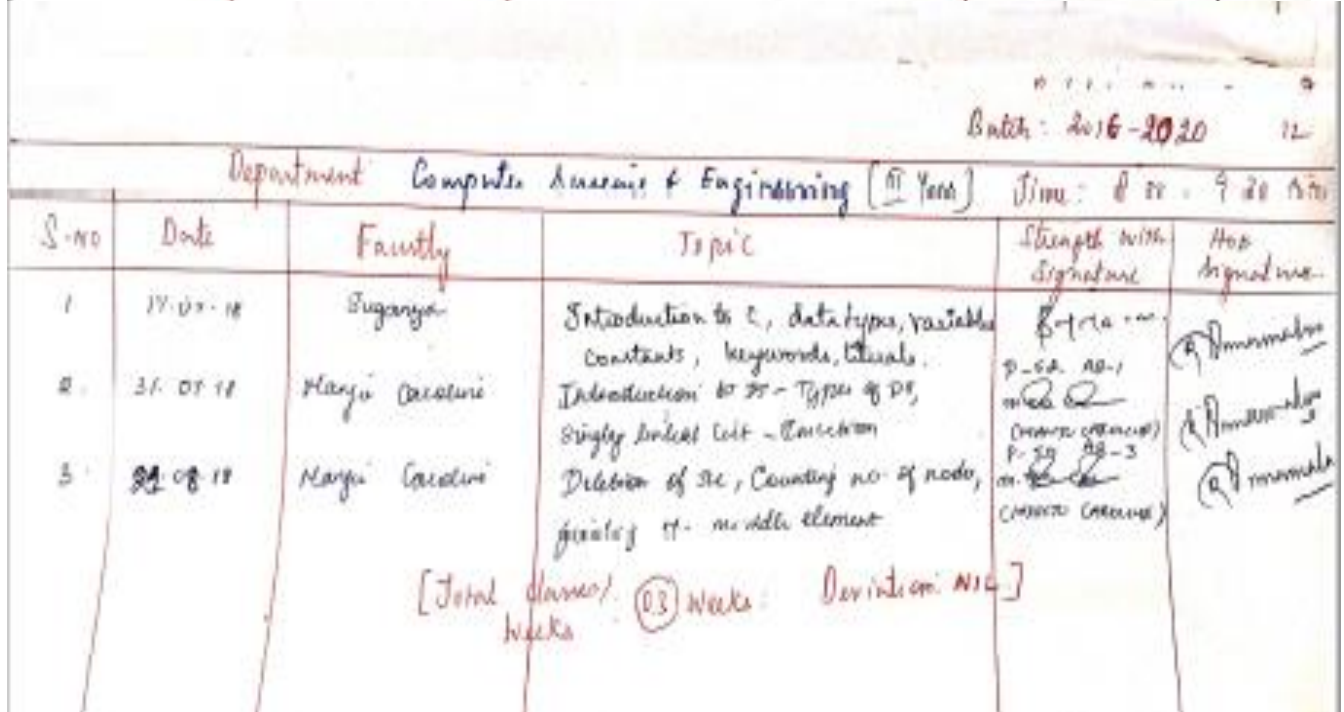 Batch: 2016-2020 12
Department Computer Science & Engineering [III Year] Time:
S.NO Date Faculty Topic Strength with Signature HOD Signature
1 Suganya Introduction to C, data types, variables
constants, keywords, literals.
2. 31.07.18 Manju Caroline Introduction to DS - Types of DS,
P-59 AB-1
Singly linked list - Insertion
(MANJU CAROLINE)
P-59 AB-3
3. .08.18 Manju Caroline Deletion of SLL, Counting no. of nodes,
middle element
(MANJU CAROLINE)
[Total classes/ Weeks : 03 Weeks: Deviation: NIL]